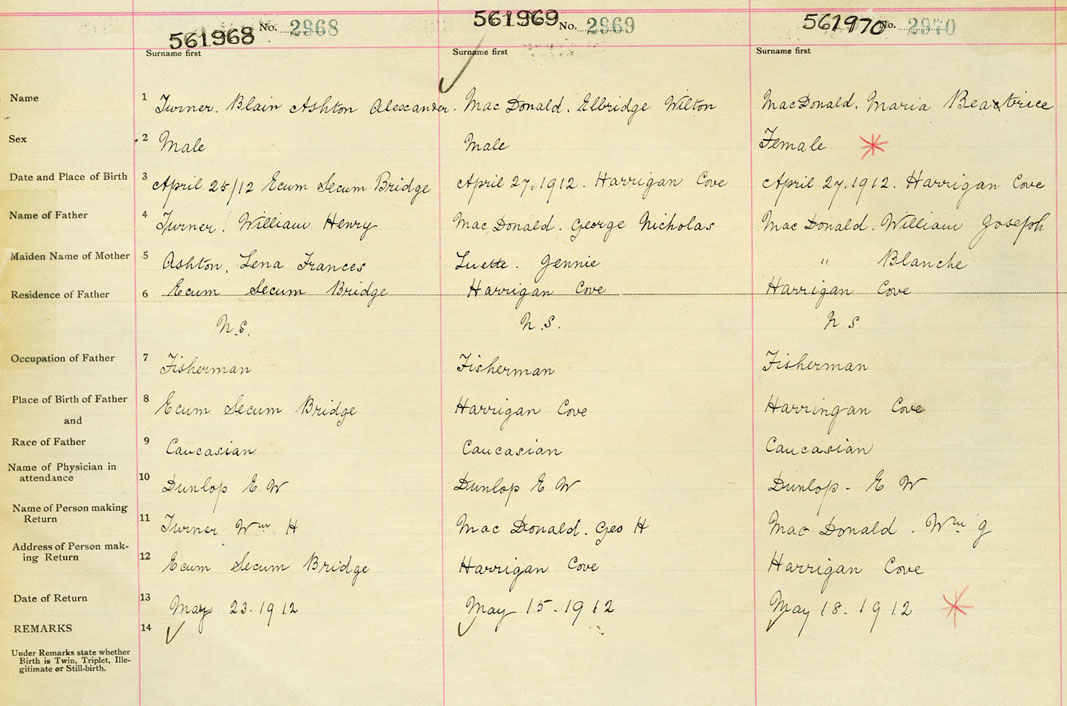 561968 No. 2968 561969 No. 2969 561970 No. 2970
Surname first Surname first Surname first
Name 1 Turner. Blain Ashton Alexander. Mac Donald. Elbridge Wilton MacDonald. Maria Beatrice
Sex 2 Male Male Female *
Date and Place of Birth 3 April 25/12 Ecum Secum Bridge April 27, 1912. Harrigan Cove April 27, 1912. Harrigan Cove
Name of Father 4 Turner. William Henry Mac Donald. George Nicholas Mac Donald. William Joseph
Maiden Name of Mother 5 Ashton. Lena Frances Jennie " Blanche
Residence of Father 6 Ecum Secum Bridge Harrigan Cove Harrigan Cove
N.S. N.S. N.S
Occupation of Father 7 Fisherman Fisherman Fisherman
Place of Birth of Father 8 Ecum Secum Bridge Harrigan Cove Harringan Cove
and
Race of Father 9 Caucasian Caucasian Caucasian
Name of Physician in
attendance 10 Dunlop E W Dunlop E W Dunlop - E W
Name of Person making
Return 11 Turner Wm H Mac Donald. Geo H Mac Donald. Wm J
Address of Person mak-
ing Return 12 Ecum Secum Bridge Harrigan Cove Harrigan Cove
Date of Return 13 May 23. 1912 May 15. 1912 May 18. 1912 *
REMARKS 14
Under Remarks state whether
Birth is Twin, Triplet, Ille-
gitimate or Still-birth.